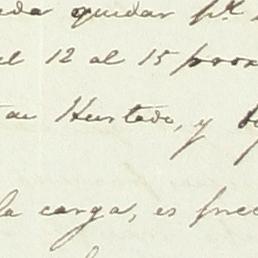 quedar pr.
al 12 al 15 prox
Hurtado, y
la carga, es frec